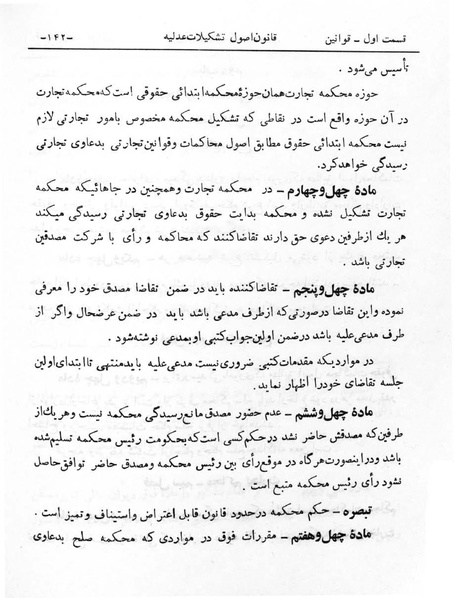 قسمت اول - قوانین قانون اصول تشکیلات عدلیه -۱۴۲-
تأسیس می‌شود .
حوزه محکمه تجارت همان حوزهٔ محکمه ابتدائی حقوقی است که محکمه تجارت
در آن حوزه واقع است در نقاطی که تشکیل محکمه مخصوص بامور تجارتی لازم
نیست محکمه ابتدائی حقوق مطابق اصول محاکمات وقوانین تجارتی بدعاوی تجارتی
رسیدگی خواهد کرد.
مادهٔ چهل و چهارم - در محکمه تجارت وهمچنین در جاهائیکه محکمه
تجارت تشکیل نشده و محکمه بدایت حقوق بدعاوی تجارتی رسیدگی میکند
هر یك از طرفین دعوی حق دارند تقاضا کنند که محاکمه و رأی با شرکت مصدقین
تجارتی باشد .
مادهٔ چهل و پنجم - تقاضا کننده باید در ضمن تقاضا مصدق خود را معرفی
نموده واین تقاضا درصورتی که از طرف مدعی باشد باید در ضمن عرضحال واگر از
طرف مدعی علیه باشد درضمن اولین جواب کتبی او بمدعی نوشته شود .
در مواردیکه مقدمات کتبی ضروری نیست مدعی علیه باید منتهی تا ابتدای اولین
جلسه تقاضای خود را اظهار نماید.
مادهٔ چهل و ششم - عدم حضور مصدق مانع رسیدگی محکمه نیست وهر یك از
طرفین که مصدقش حاضر نشد در حکم کسی است که بحکومت رئیس محکمه تسلیم شده
باشد ودر اینصورت هر گاه در موقع رأی بین رئیس محکمه ومصدق حاضر توافق حاصل
نشود رأی رئیس محکمه متبع است .
تبصره - حکم محکمه در حدود قانون قابل اعتراض واستیناف و تمیز است .
مادهٔ چهل و هفتم - مقررات فوق در مواردی که محکمه صلح بدعاوی